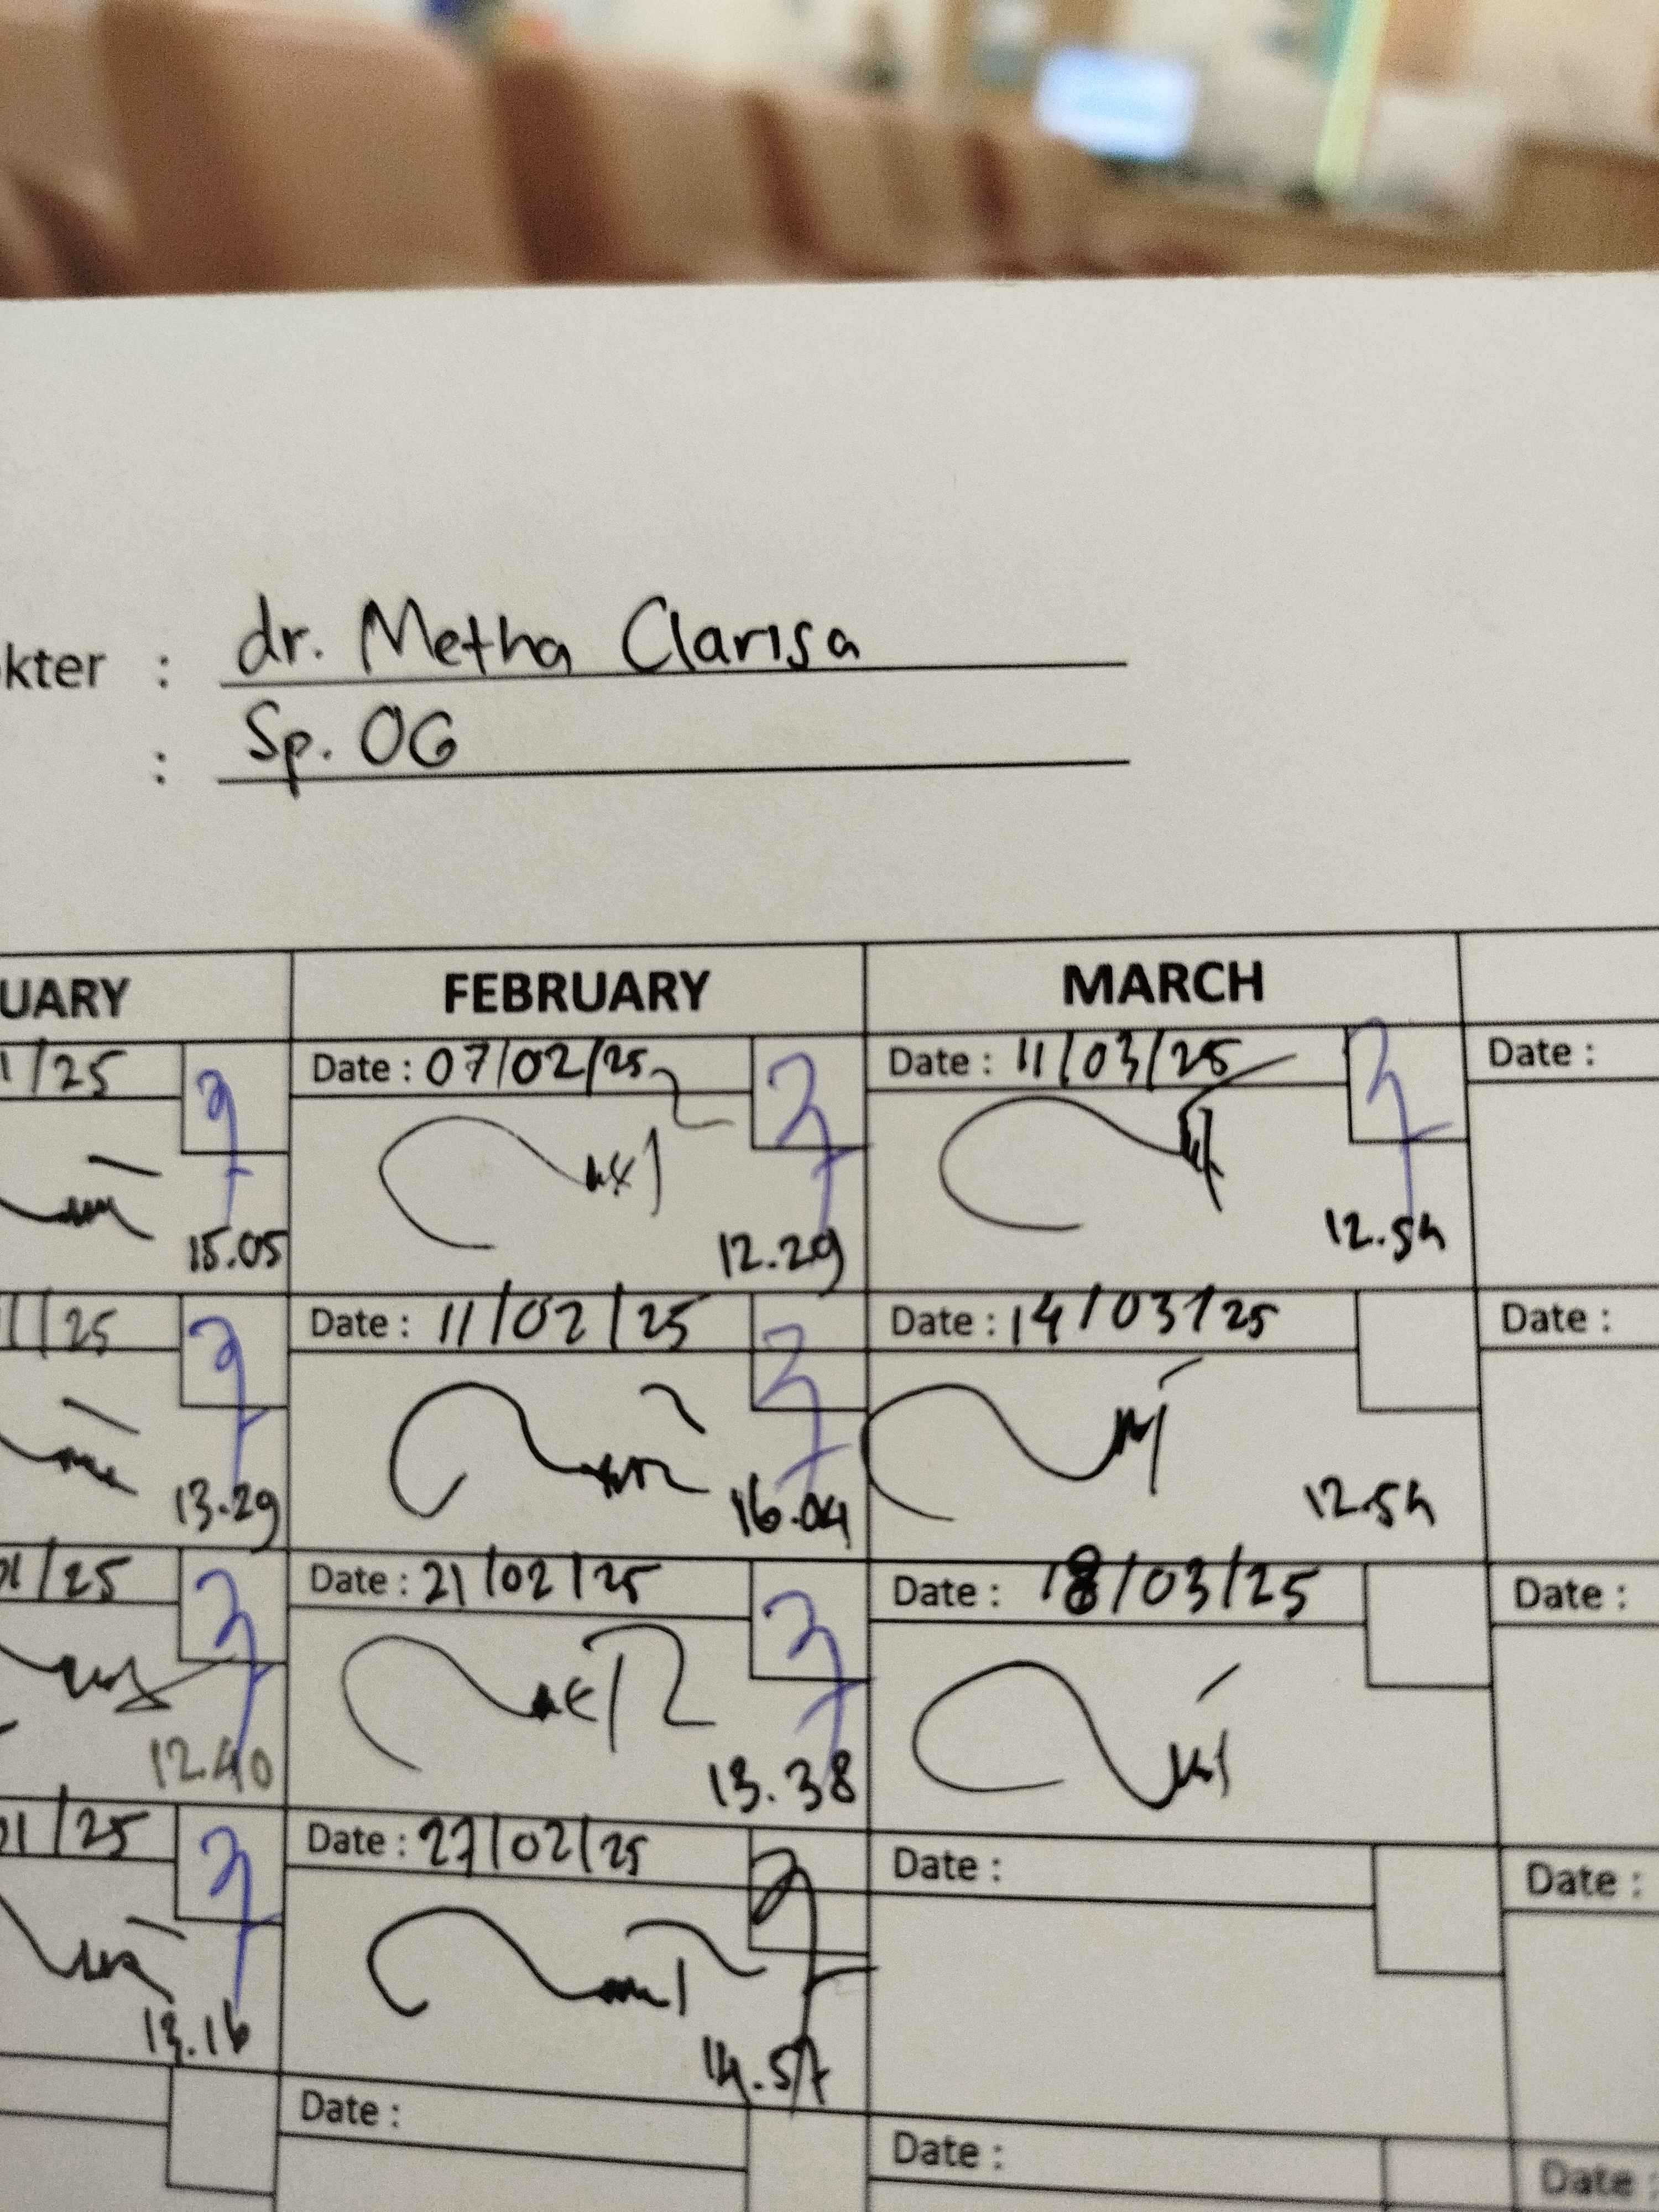 kter : dr. Metha Clarisa
: Sp. OG
UARY FEBRUARY MARCH
1/25 Date : 07/02/25 Date : 11/03/25 Date :
15.05 12.29 12.54
1/25 Date : 11/02/25 Date : 14/03/25 Date :
13.29 16.04 12.54
01/25 Date : 21/02/25 Date : 18/03/25 Date :
12.40 13.38
01/25 Date : 27/02/25 Date : Date :
13.16 14.57
Date : Date : Date :